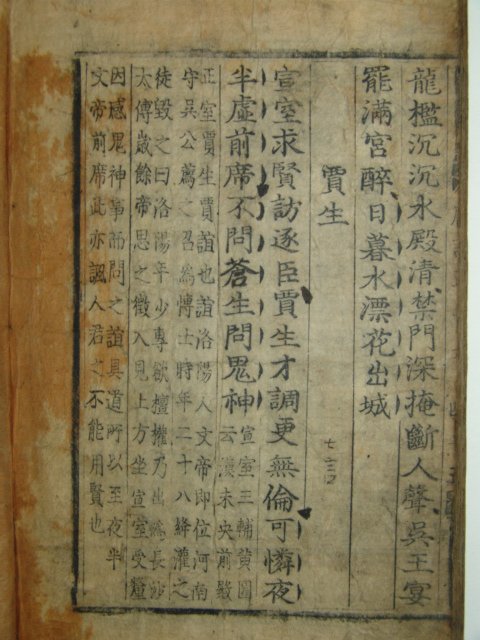 龍檻沉沉水殿清禁門深掩斷人聲吳王宴
罷滿宮醉日暮水漂花出城
賈生
宣室求賢訪逐臣賈生才調更無倫可憐夜
半虛前席不問蒼生問鬼神
宣室三輔黃圖
云漢未央前殿
正室賈生賈誼也誼洛陽人文帝即位河南
守吳公薦之召爲博士時年二十八絳灌之
徒毀之曰洛陽年少專欲擅權乃出爲長沙
太傅歲餘帝思之徵入見上方坐宣室受釐
因感鬼神事而問之誼具道所以至夜半
文帝前席此亦諷人君之不能用賢也